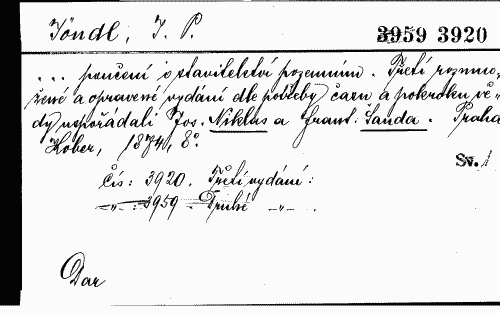 Jöndl, J. P.
3959 3920
... poučení o stavitelství pozemním. Třetí rozmno-
žené a opravené vydání dle potřeby času a pokroku vě-
dy uspořádali Jos. Niklas a Frant. Šanda. Praha
Kober, 1874, 8°.
Sv. 1
Čís: 3920. Třetí vydání:
-„- : 3959. Druhé -„- .
Dar